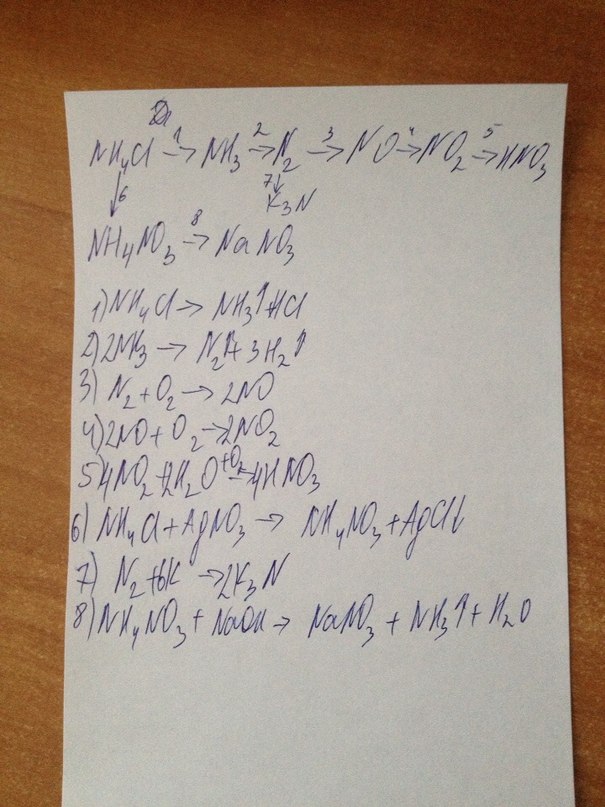 NH4Cl 1→ NH3 2→ N2 3→ NO 4→ NO2 5→ HNO3
↓6 7↓
K3N
NH4NO3 8→ NaNO3
1) NH4Cl → NH3↑ + HCl
2) 2NH3 → N2↑ + 3H2↑
3) N2 + O2 → 2NO
4) 2NO + O2 → 2NO2
5) 4NO2 + 2H2O +O2→ 4HNO3
6) NH4Cl + AgNO3 → NH4NO3 + AgCl↓
7) N2 + 6K → 2K3N
8) NH4NO3 + NaOH → NaNO3 + NH3↑ + H2O